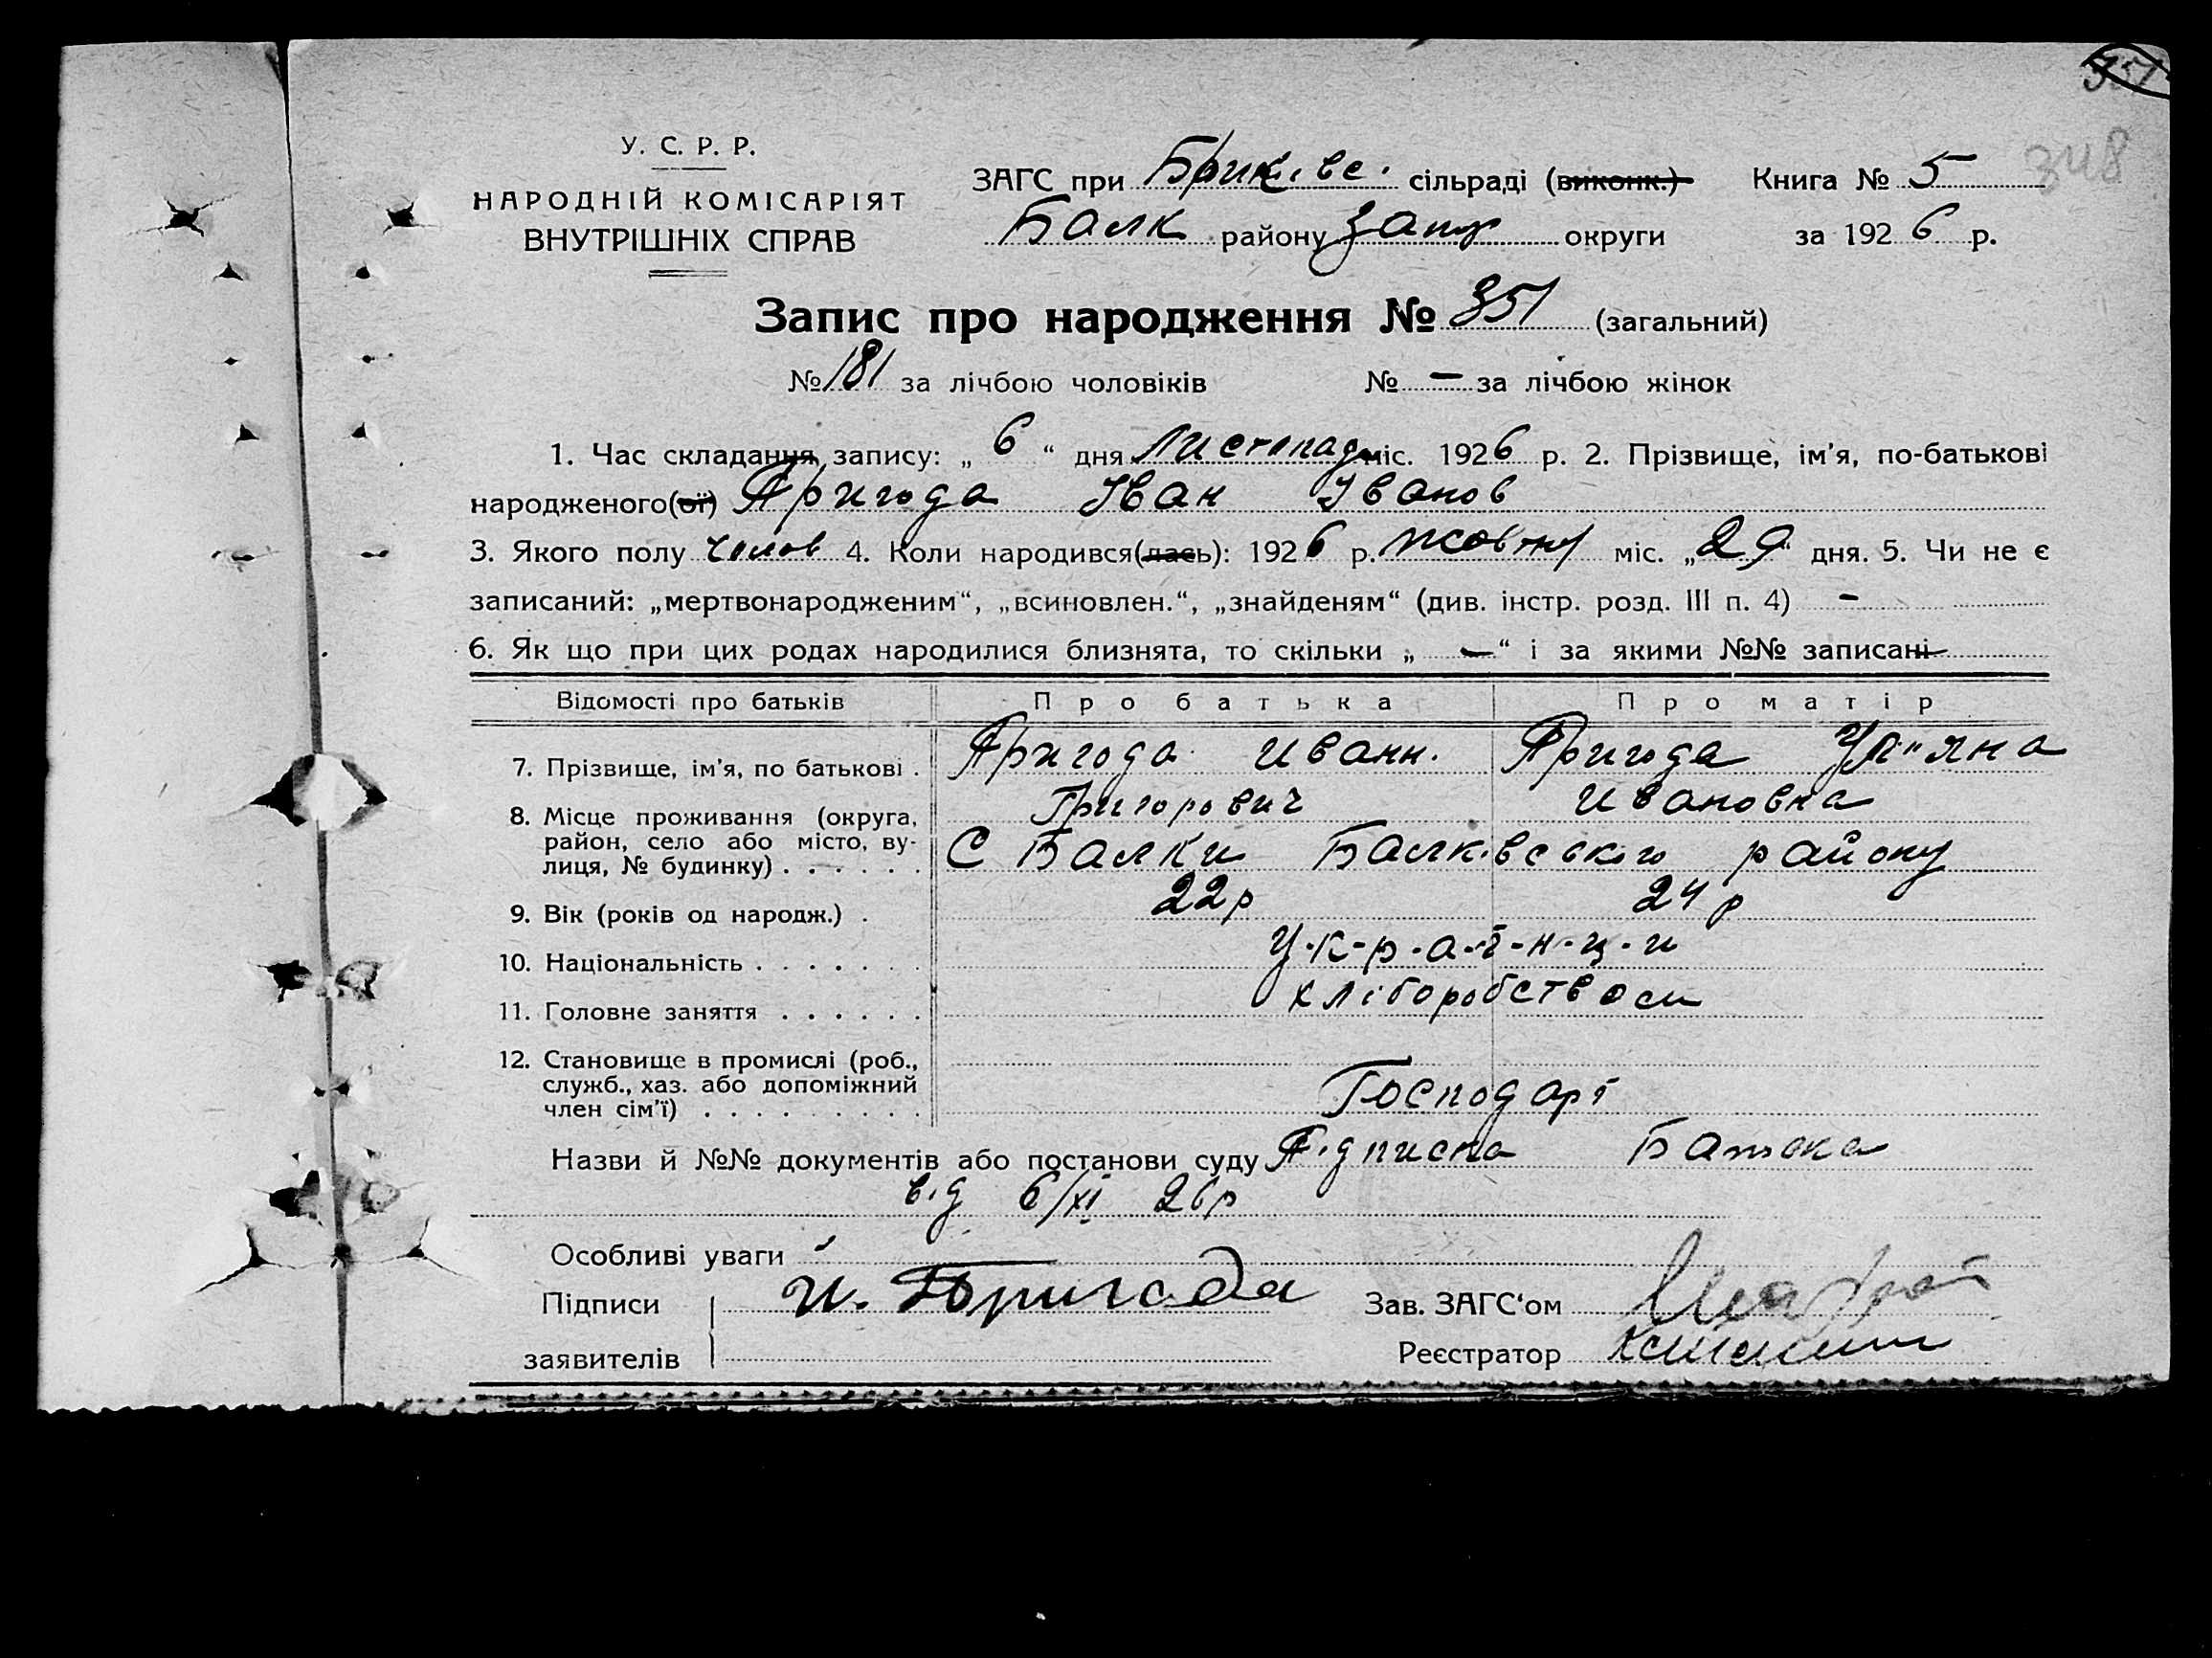 351
348
У. С. Р. Р.
НАРОДНІЙ КОМІСАРІЯТ
ВНУТРІШНІХ СПРАВ
ЗАГС при сільраді (виконк.) Книга № 5
Балк району Запор округи за 1926 р.
Запис про народження № 351 (загальний)
№ 181 за лічбою чоловіків № — за лічбою жінок
1. Час складання запису: „ 6 “ дня Листопад міс. 1926 р. 2. Прізвище, ім'я, по-батькові
народженого(ої) Пригода Іван Іванов
3. Якого полу чолов 4. Коли народився(лась): 1926 р. жовтня міс. „ 29 “ дня. 5. Чи не є
записаний: „мертвонародженим“, „всиновлен.“, „знайденям“ (див. інстр. розд. III п. 4) —
6. Як що при цих родах народилися близнята, то скільки „ — “ і за якими №№ записані —
Відомості про батьків Про батька Про матір
7. Прізвище, ім'я, по батькові . Пригода Иванн. Пригода Ул"яна
Григорович Ивановна
8. Місце проживання (округа,
район, село або місто, ву-
лиця, № будинку) . . . . . . С Балки Балківського району
9. Вік (років од народж.) . 22р 24р
10. Національність . . . . . . . У-к-р-а-ї-н-ц-и
11. Головне заняття . . . . . . хліборобством
12. Становище в промислі (роб.,
служб., хаз. або допоміжний
член сім'ї) . . . . . . . . . Господарі
Назви й №№ документів або постанови суду Підписка Батька
від 6/XI 26р
Особливі уваги
Підписи И. Пригода Зав. ЗАГС‘ом
заявителів Реєстратор